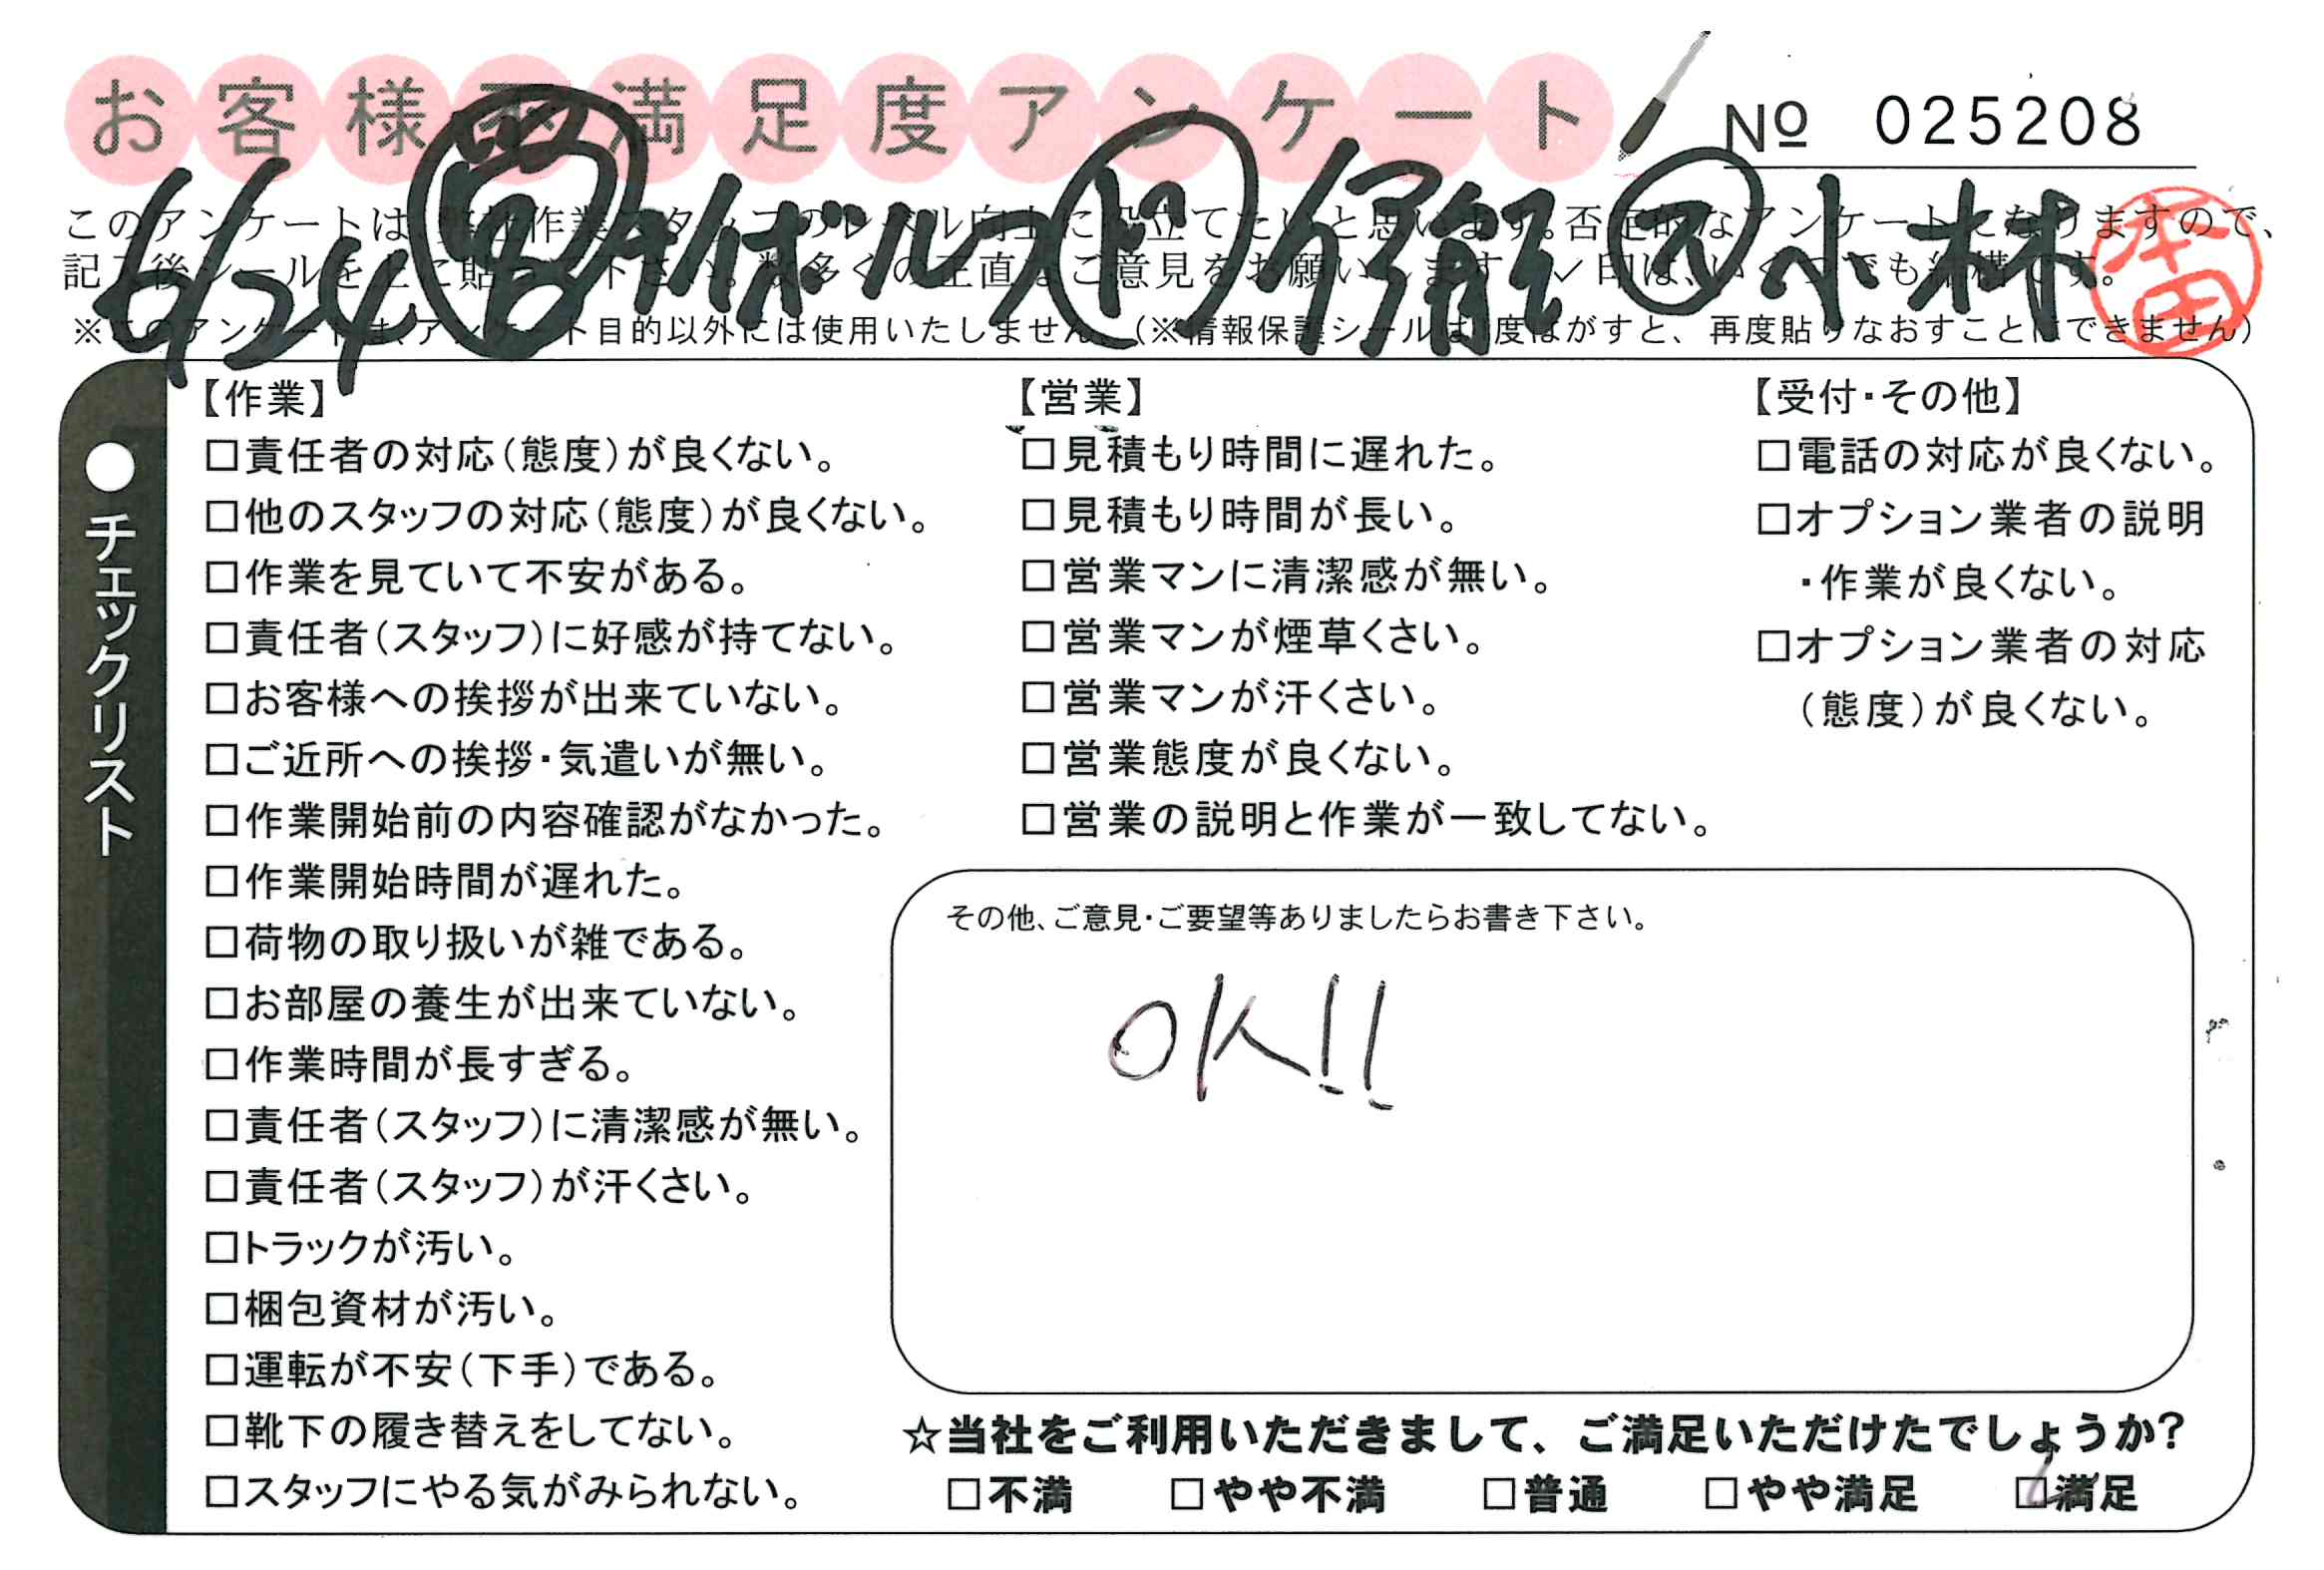 お客様不満足度アンケート
№ 025208
6/24 ダイボールス ド 伊能 ス 小林
本田
このアンケートは、弊社作業スタッフのレベル向上に役立てたいと思います。否定的なアンケートになりますので、
記入後シールを上に貼って下さい。数多くの正直なご意見をお願いします。✓印は、いくつでも結構です。
※このアンケートは、アンケート目的以外には使用いたしません。(※情報保護シールは1度はがすと、再度貼りなおすことはできません)
●チェックリスト
【作業】
□責任者の対応(態度)が良くない。
□他のスタッフの対応(態度)が良くない。
□作業を見ていて不安がある。
□責任者(スタッフ)に好感が持てない。
□お客様への挨拶が出来ていない。
□ご近所への挨拶・気遣いが無い。
□作業開始前の内容確認がなかった。
□作業開始時間が遅れた。
□荷物の取り扱いが雑である。
□お部屋の養生が出来ていない。
□作業時間が長すぎる。
□責任者(スタッフ)に清潔感が無い。
□責任者(スタッフ)が汗くさい。
□トラックが汚い。
□梱包資材が汚い。
□運転が不安(下手)である。
□靴下の履き替えをしてない。
□スタッフにやる気がみられない。
【営業】
□見積もり時間に遅れた。
□見積もり時間が長い。
□営業マンに清潔感が無い。
□営業マンが煙草くさい。
□営業マンが汗くさい。
□営業態度が良くない。
□営業の説明と作業が一致してない。
【受付・その他】
□電話の対応が良くない。
□オプション業者の説明
・作業が良くない。
□オプション業者の対応
(態度)が良くない。
その他、ご意見・ご要望等ありましたらお書き下さい。
OK!!
☆当社をご利用いただきまして、ご満足いただけたでしょうか?
□不満 □やや不満 □普通 □やや満足 ☑満足